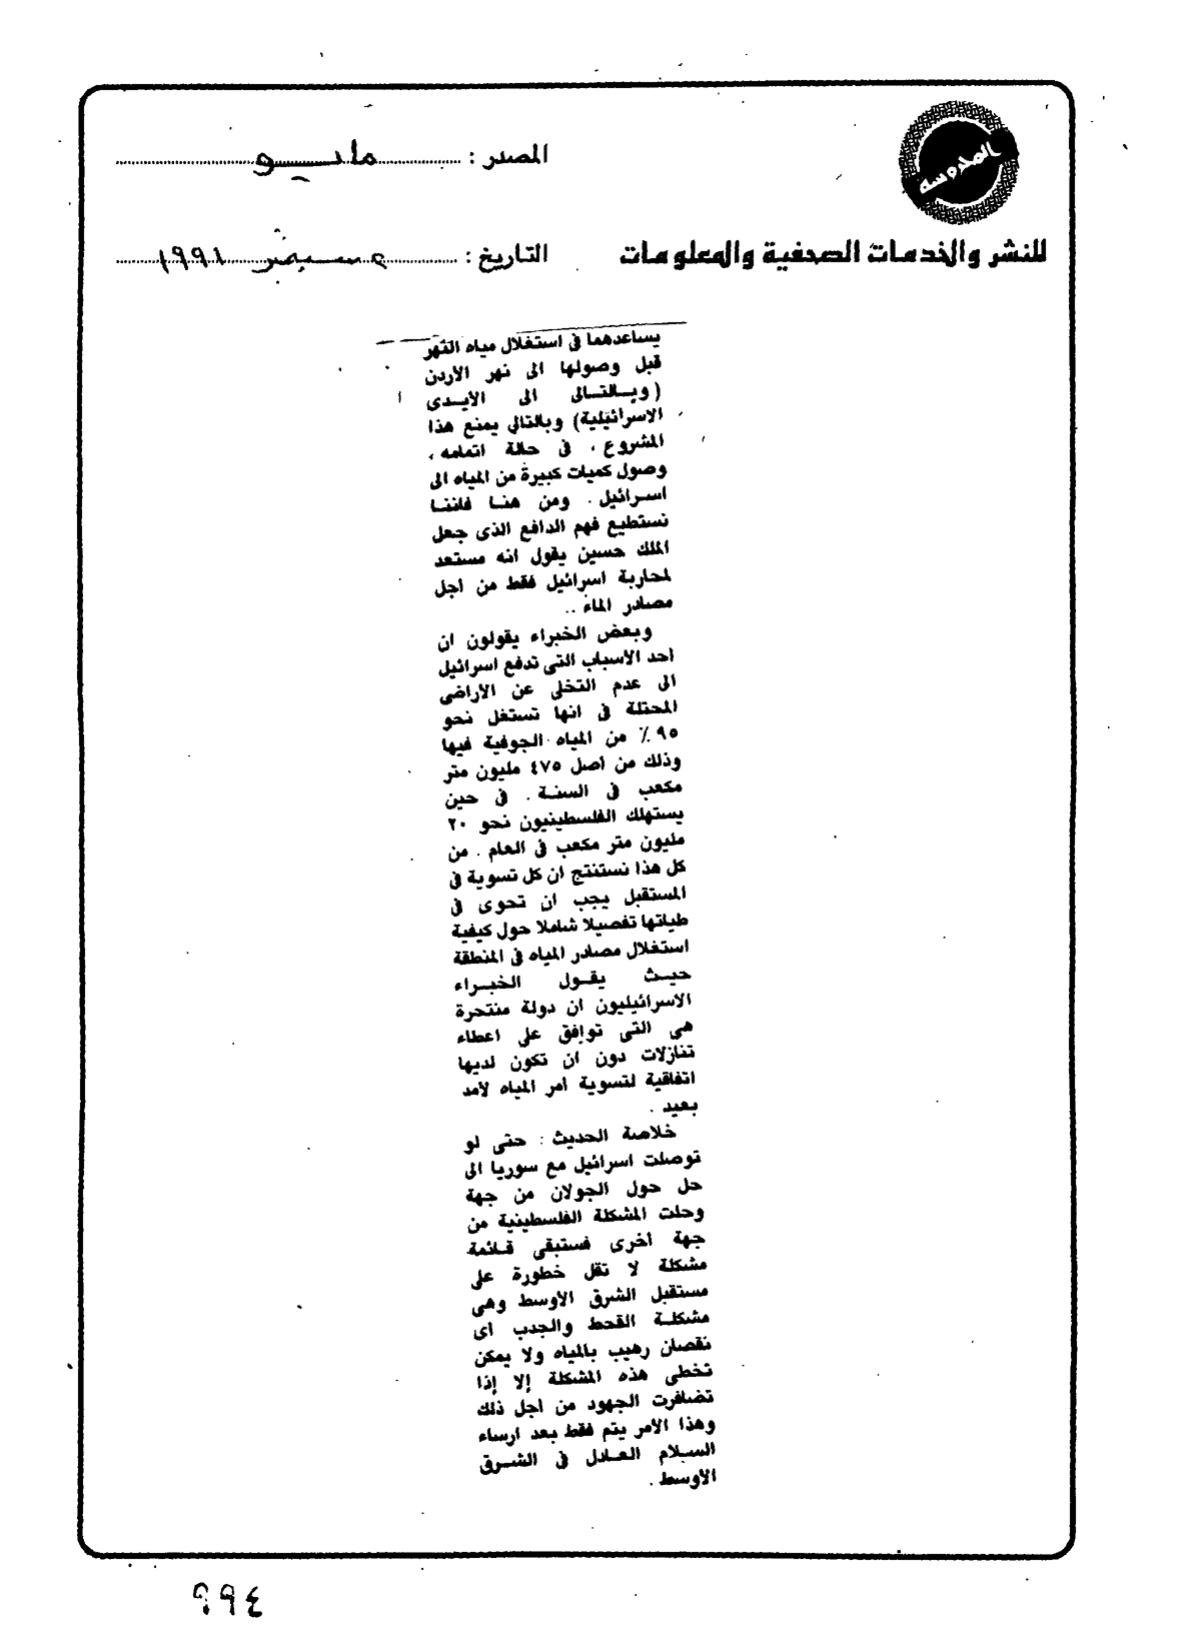 المحروسة
للنشر والخدمات الصحفية والمعلومات
المصدر : مايو
التاريخ : سبتمبر ١٩٩١
يساعدهما فى استغلال مياه النهر
قبل وصولها الى نهر الأردن
( وبالتالى الى الأيدى
الاسرائيلية) وبالتالى يمنع هذا
المشروع ، فى حالة اتمامه ،
وصول كميات كبيرة من المياه الى
اسرائيل . ومن هنا فاننا
نستطيع فهم الدافع الذى جعل
الملك حسين يقول انه مستعد
لمحاربة اسرائيل فقط من اجل
مصادر الماء ..
وبعض الخبراء يقولون ان
أحد الأسباب التى تدفع اسرائيل
الى عدم التخلى عن الأراضى
المحتلة فى انها تستغل نحو
٩٥٪ من المياه الجوفية فيها
وذلك من أصل ٤٧٥ مليون متر
مكعب فى السنة . فى حين
يستهلك الفلسطينيون نحو ٢٠
مليون متر مكعب فى العام . من
كل هذا نستنتج ان كل تسوية فى
المستقبل يجب ان تحوى فى
طياتها تفصيلا شاملا حول كيفية
استغلال مصادر المياه فى المنطقة
حيث يقول الخبراء
الاسرائيليون ان دولة منتحرة
هى التى توافق على اعطاء
تنازلات دون ان تكون لديها
اتفاقية لتسوية أمر المياه لأمد
بعيد .
خلاصة الحديث : حتى لو
توصلت اسرائيل مع سوريا الى
حل حول الجولان من جهة
وحلت المشكلة الفلسطينية من
جهة أخرى فستبقى قائمة
مشكلة لا تقل خطورة على
مستقبل الشرق الأوسط وهى
مشكلة القحط والجدب أى
نقصان رهيب بالمياه ولا يمكن
تخطى هذه المشكلة إلا إذا
تضافرت الجهود من اجل ذلك
وهذا الأمر يتم فقط بعد ارساء
السلام العادل فى الشرق
الأوسط .
٩٩٤